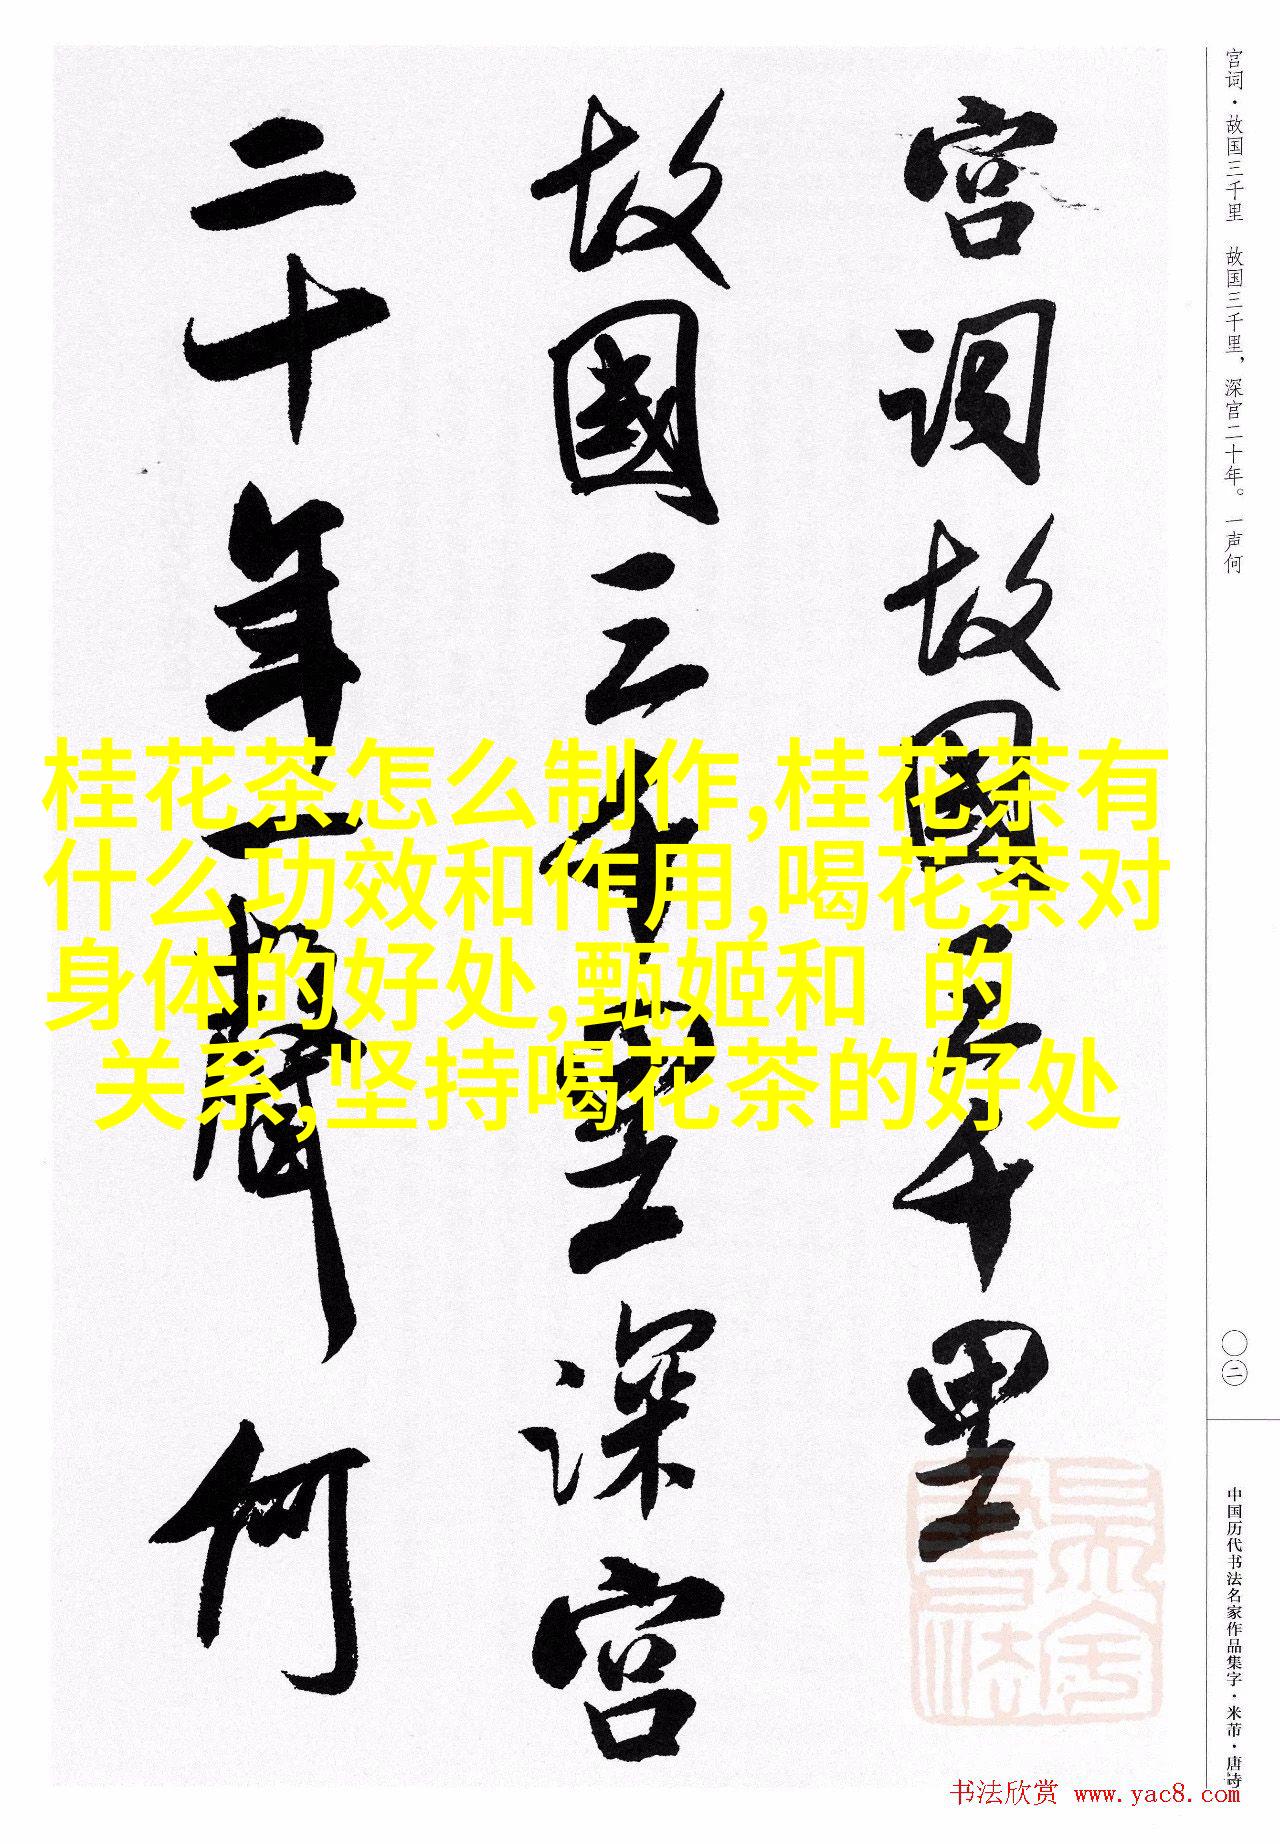 宫词·故国三千里 故国三千里，深宫二十年。一声何
宫词故國三千里
故國三千里深宫
二十年一聲何
桂花茶怎么制作,桂花茶有
什么功效和作用,喝花茶对
身体的好处,甄姬和 的
关系,坚持喝花茶的好处
〇二
中国历代书法名家作品集字·米芾·唐诗
书法欣赏 www.yac8.com